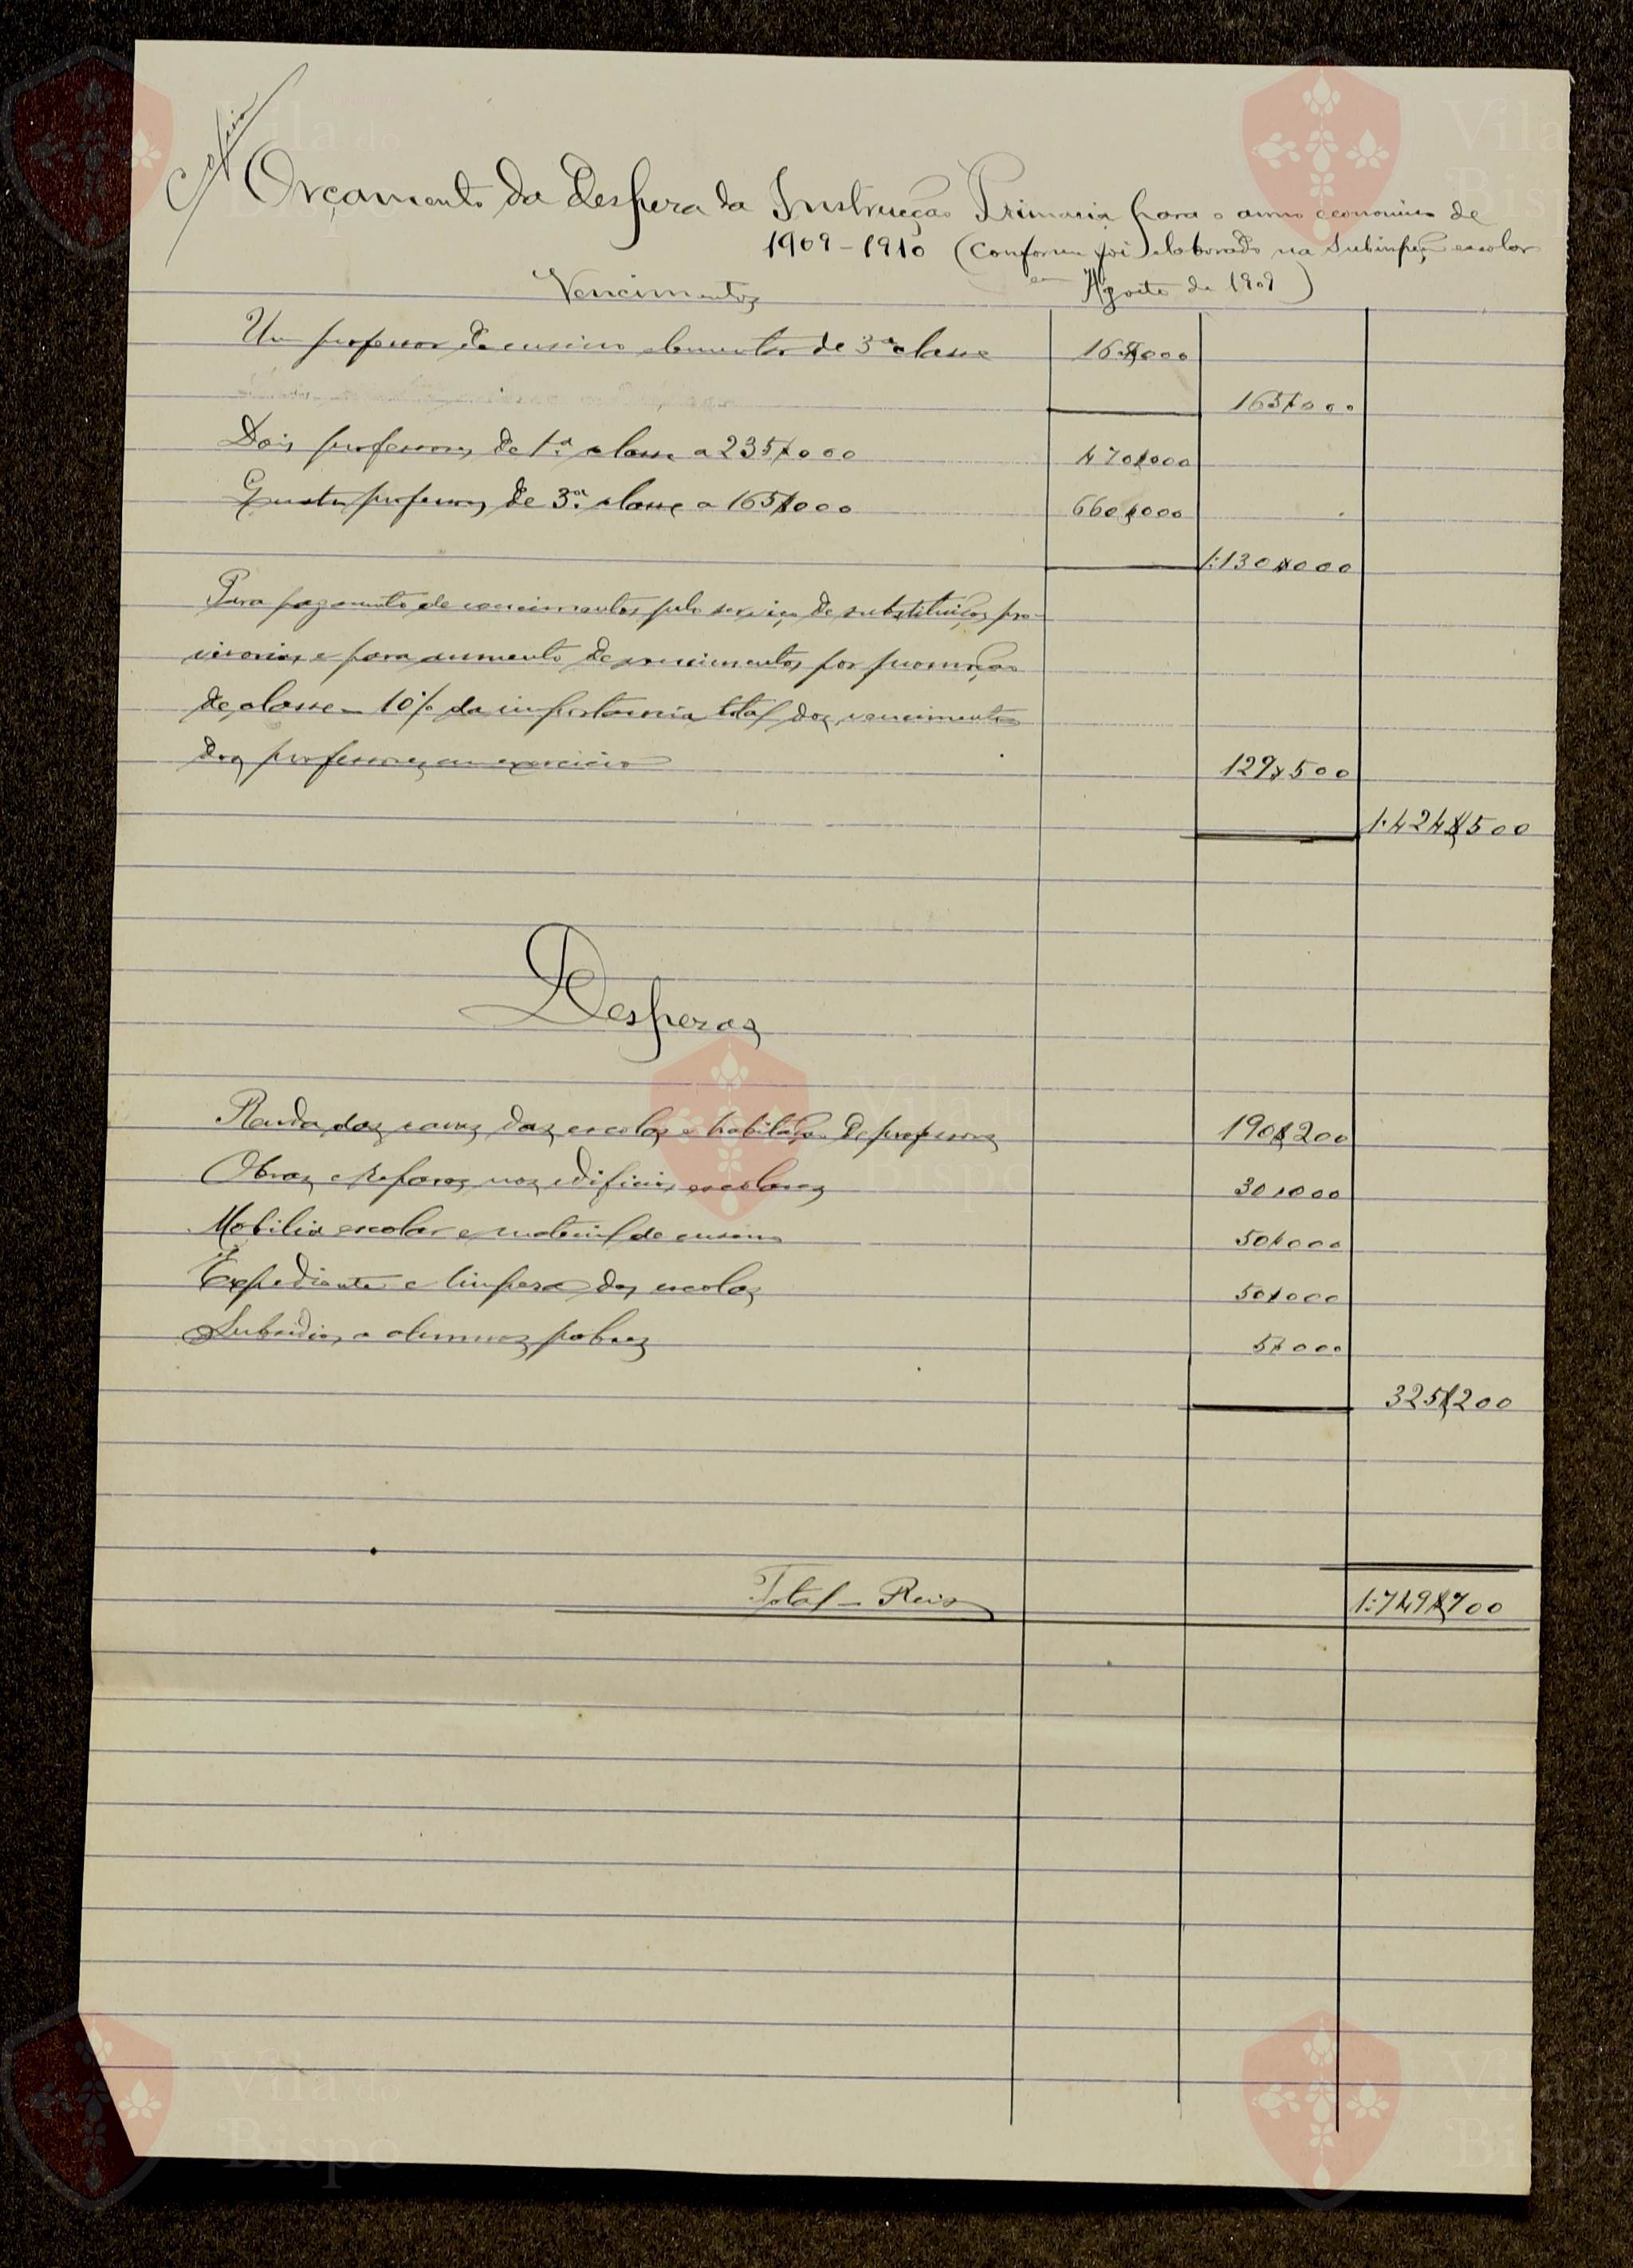 Copia
Orçamento da Despeza da Instrucção Primaria para o anno economico de
1909-1910 (Conforme foi elaborado na Subinspeção escolar
em Agosto de 1909)
Vencimentos
Um professor de ensino elementar de 3ª classe 165$000
165$000
Dois professores de 1.ª classe a 235$000 470$000
Quatro professores de 3.ª classe a 165$000 660$000
1:130$000
Para pagamento de vencimentos pelo serviço de substituições pro-
visorias e para augmento de vencimentos por promoção
de classe - 10% da importancia total dos vencimentos
dos professores em exercicio 129$500
1:424$500
Despezas
Renda das casas das escolas e habitação de professores 190$200
Obras e Reparos nos edificios escolares 30$000
Mobilia escolar e material de ensino 50$000
Expediente e limpeza das escolas 50$000
Subsidios a alumnos pobres 5$000
325$200
Total - Reis 1:749$700
Vila do
Bispo